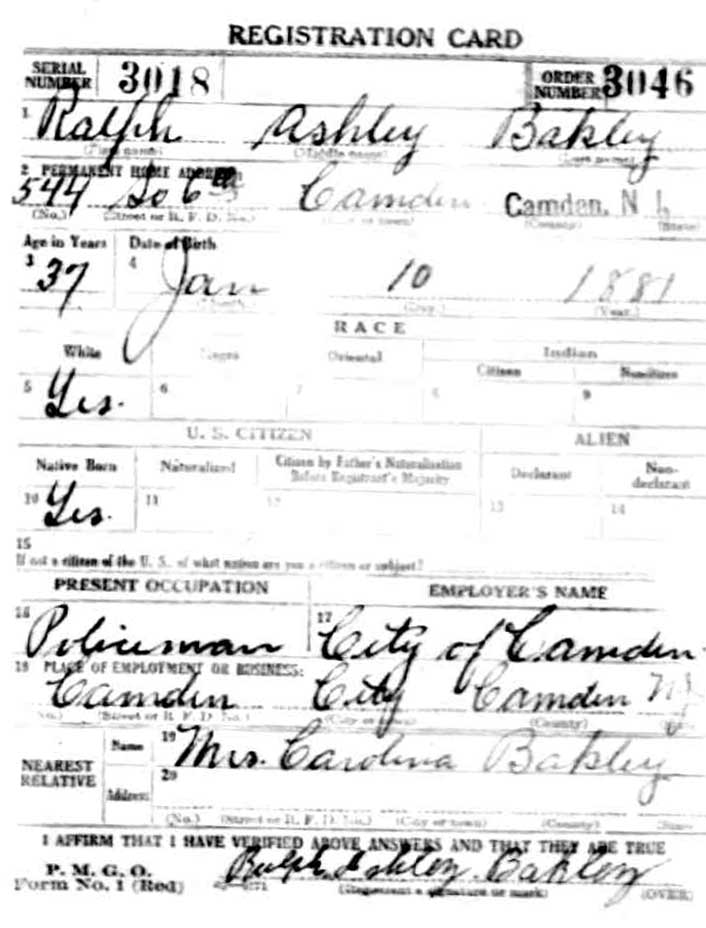 REGISTRATION CARD
SERIAL NUMBER 3018 ORDER NUMBER 3046
1 Ralph Ashley Bakley
(First name) (Middle name) (Last name)
2 PERMANENT HOME ADDRESS:
544 So 6th Camden Camden, N J.
(No.) (Street or R. F. D. No.) (City or town) (County) (State)
Age in Years Date of Birth
3 37 4 Jan 10 1881
(Month) (Day) (Year)
RACE
White Negro Oriental Indian
Citizen Noncitizen
5 Yes. 6 7 8 9
U. S. CITIZEN ALIEN
Native Born Naturalized Citizen by Father's Naturalization Before Registrant's Majority Declarant Non-declarant
10 Yes. 11 12 13 14
15
If not a citizen of the U. S., of what nation are you a citizen or subject?
PRESENT OCCUPATION EMPLOYER'S NAME
16 Policeman 17 City of Camden
18 PLACE OF EMPLOYMENT OR BUSINESS:
Camden City Camden NJ
(No.) (Street or R. F. D. No.) (City or town) (County) (State)
NEAREST RELATIVE Name 19 Mrs. Carolina Bakley
Address 20
(No.) (Street or R. F. D. No.) (City or town) (County) (State)
I AFFIRM THAT I HAVE VERIFIED ABOVE ANSWERS AND THAT THEY ARE TRUE
P. M. G. O.
Form No. 1 (Red) Ralph Ashley Bakley
(Registrant's signature or mark) (OVER)